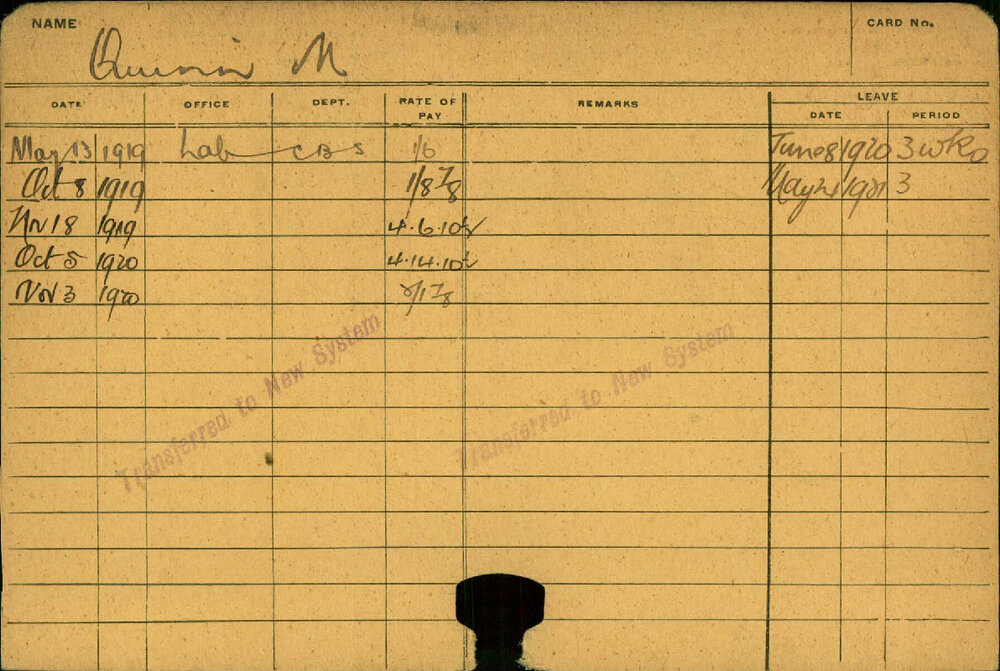 NAME CARD No.
Quinn M
DATE OFFICE DEPT. RATE OF PAY REMARKS LEAVE
DATE PERIOD
May 13 1919 Lab CBS 1/6 June 8 1920 3 wks
Oct 8 1919 1/8 7/8 May 21 1921 3
Nov 18 1919 4.6.10½
Oct 5 1920 4.14.10½
Nov 3 1920 2/1 7/8
Transferred to New System
Transferred to New System